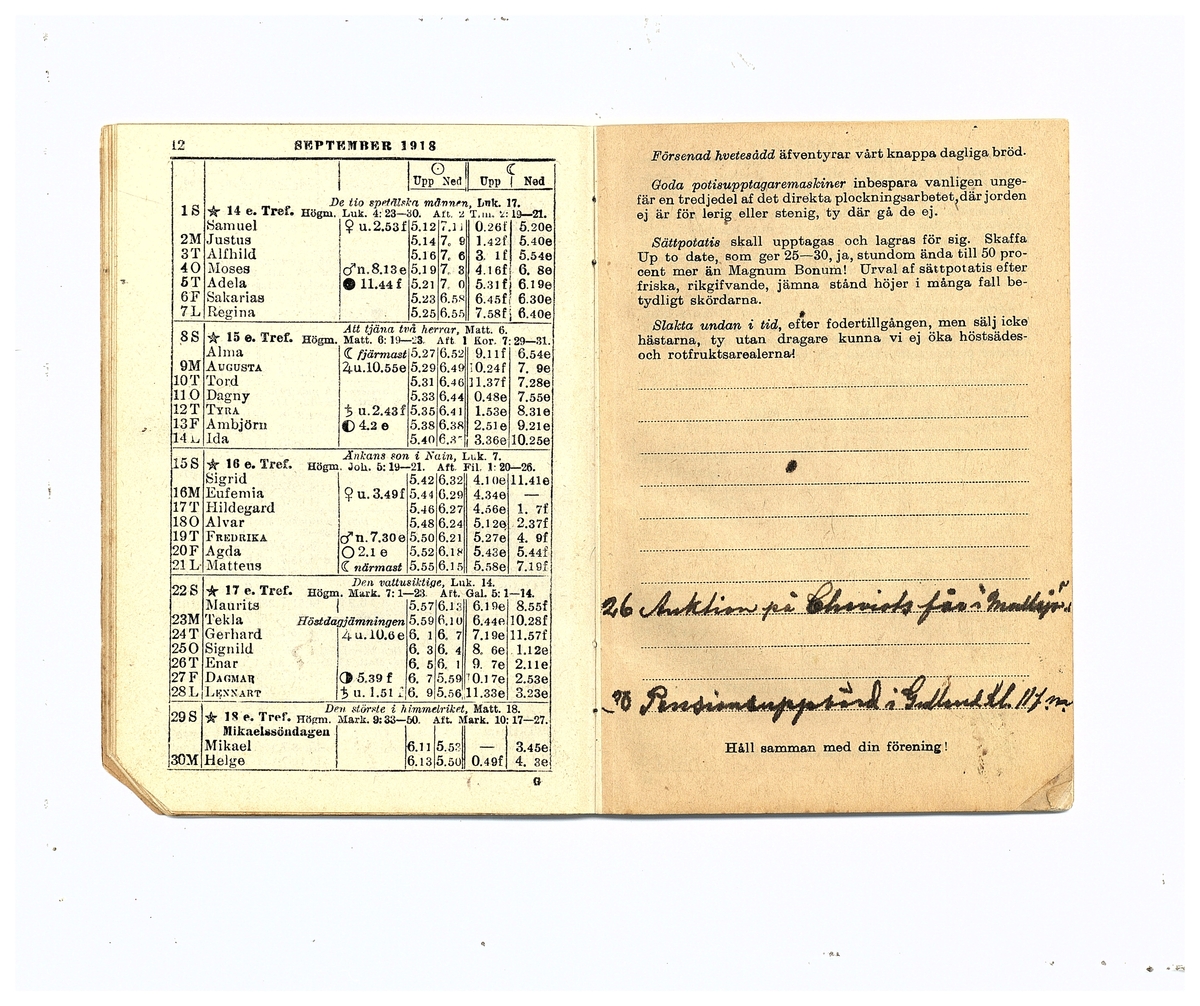 12 SEPTEMBER 1918
☉ ☾
Upp Ned Upp Ned
De tio spetälska männen, Luk. 17.
1 S ★ 14 e. Tref. Högm. Luk. 4: 23—30. Aft. 2 T.m. 2: 19—21.
Samuel ♀ u. 2.53 f 5.12 7.11 0.26f 5.20e
2M Justus 5.14 7. 9 1.42f 5.40e
3T Alfhild 5.16 7. 6 3. 1f 5.54e
4O Moses ♂ n. 8.13 e 5.19 7. 3 4.16f 6. 8e
5T Adela ● 11.44 f 5.21 7. 0 5.31f 6.19e
6F Sakarias 5.23 6.58 6.45f 6.30e
7L Regina 5.25 6.55 7.58f 6.40e
Att tjäna två herrar, Matt. 6.
8 S ★ 15 e. Tref. Högm. Matt. 6: 19—23. Aft 1 Kor. 7: 29—31.
Alma ☾ fjärmast 5.27 6.52 9.11f 6.54e
9M AUGUSTA ♃ u. 10.55e 5.29 6.49 10.24f 7. 9e
10T Tord 5.31 6.46 11.37f 7.28e
11O Dagny 5.33 6.44 0.48e 7.55e
12T TYRA ♄ u. 2.43 f 5.35 6.41 1.53e 8.31e
13F Ambjörn ◐ 4.2 e 5.38 6.38 2.51e 9.21e
14L Ida 5.40 3.36e 10.25e
Änkans son i Nain, Luk. 7.
15 S ★ 16 e. Tref. Högm. Joh. 5: 19—21. Aft. Fil. 1: 20—26.
Sigrid 5.42 6.32 4.10e 11.41e
16M Eufemia ♀ u. 3.49f 5.44 6.29 4.34e —
17T Hildegard 5.46 6.27 4.56e 1. 7f
18O Alvar 5.48 6.24 5.12e 2.37f
19T FREDRIKA ♂ n. 7.30 e 5.50 6.21 5.27e 4. 9f
20F Agda ○ 2.1 e 5.52 6.18 5.43e 5.44f
21L Matteus ☾ närmast 5.55 6.15 5.58e 7.19f
Den vattusiktige, Luk. 14.
22 S ★ 17 e. Tref. Högm. Mark. 7: 1—23. Aft. Gal. 5: 1—14.
Maurits 5.57 6.13 6.19e 8.55f
23M Tekla Höstdagjämningen 5.59 6.10 6.44e 10.28f
24T Gerhard ♃ u. 10.6 e 6. 1 6. 7 7.19e 11.57f
25O Signild 6. 3 6. 4 8. 6e 1.12e
26T Enar 6. 5 6. 1 9. 7e 2.11e
27F DAGMAR ◑ 5.39 f 6. 7 5.59 10.17e 2.53e
28L LENNART ♄ u. 1.51 f 6. 9 5.56 11.33e 3.23e
Den störste i himmelriket, Matt. 18.
29 S ★ 18 e. Tref. Högm. Mark. 9: 33—50. Aft. Mark. 10: 17—27.
Mikaelssöndagen
Mikael 6.11 5.53 — 3.45e
30M Helge 6.13 5.50 0.49f 4. 3e
G
Försenad hvetesådd äfventyrar vårt knappa dagliga bröd.
Goda potisupptagaremaskiner inbespara vanligen unge-
fär en tredjedel af det direkta plockningsarbetet, där jorden
ej är för lerig eller stenig, ty där gå de ej.
Sättpotatis skall upptagas och lagras för sig. Skaffa
Up to date, som ger 25—30, ja, stundom ända till 50 pro-
cent mer än Magnum Bonum! Urval af sättpotatis efter
friska, rikgifvande, jämna stånd höjer i många fall be-
tydligt skördarna.
Slakta undan i tid, efter fodertillgången, men sälj icke
hästarna, ty utan dragare kunna vi ej öka höstsädes-
och rotfruktsarealerna!
26 Auktion på Cheviots får i
Pensionsuppbörd i Kl. 11 f m
Håll samman med din förening!